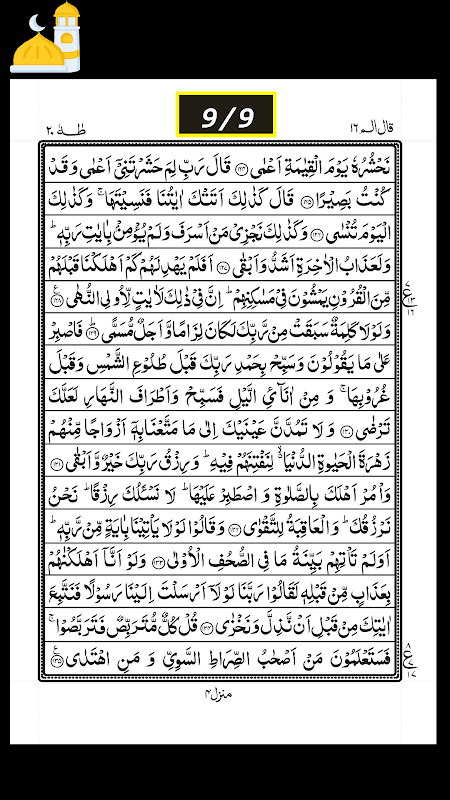 9/9
قال الم ١٦
طٰهٰ ٢٠
نَحْشُرُهٗ يَوْمَ الْقِيٰمَةِ اَعْمٰى ۝١٢٤ قَالَ رَبِّ لِمَ حَشَرْتَنِيْۤ اَعْمٰى وَقَدْ
كُنْتُ بَصِيْرًا ۝١٢٥ قَالَ كَذٰلِكَ اَتَتْكَ اٰيٰتُنَا فَنَسِيْتَهَا ۚ وَكَذٰلِكَ
الْيَوْمَ تُنْسٰى ۝١٢٦ وَكَذٰلِكَ نَجْزِيْ مَنْ اَسْرَفَ وَلَمْ يُؤْمِنْۢ بِاٰيٰتِ رَبِّهٖ ؕ
وَلَعَذَابُ الْاٰخِرَةِ اَشَدُّ وَاَبْقٰى ۝١٢٧ اَفَلَمْ يَهْدِ لَهُمْ كَمْ اَهْلَكْنَا قَبْلَهُمْ
مِّنَ الْقُرُوْنِ يَمْشُوْنَ فِيْ مَسٰكِنِهِمْ ؕ اِنَّ فِيْ ذٰلِكَ لَاٰيٰتٍ لِّاُولِي النُّهٰى ۝١٢٨
وَلَوْلَا كَلِمَةٌ سَبَقَتْ مِنْ رَّبِّكَ لَكَانَ لِزَامًا وَّاَجَلٌ مُّسَمًّى ۝١٢٩ فَاصْبِرْ
عَلٰى مَا يَقُوْلُوْنَ وَسَبِّحْ بِحَمْدِ رَبِّكَ قَبْلَ طُلُوْعِ الشَّمْسِ وَقَبْلَ
غُرُوْبِهَا ۚ وَمِنْ اٰنَآئِ الَّيْلِ فَسَبِّحْ وَاَطْرَافَ النَّهَارِ لَعَلَّكَ
تَرْضٰى ۝١٣٠ وَلَا تَمُدَّنَّ عَيْنَيْكَ اِلٰى مَا مَتَّعْنَا بِهٖۤ اَزْوَاجًا مِّنْهُمْ
زَهْرَةَ الْحَيٰوةِ الدُّنْيَا ۙ لِنَفْتِنَهُمْ فِيْهِ ؕ وَرِزْقُ رَبِّكَ خَيْرٌ وَّاَبْقٰى ۝١٣١
وَاْمُرْ اَهْلَكَ بِالصَّلٰوةِ وَاصْطَبِرْ عَلَيْهَا ؕ لَا نَسْـَٔلُكَ رِزْقًا ؕ نَحْنُ
نَرْزُقُكَ ؕ وَالْعَاقِبَةُ لِلتَّقْوٰى ۝١٣٢ وَقَالُوْا لَوْلَا يَاْتِيْنَا بِاٰيَةٍ مِّنْ رَّبِّهٖ ؕ
اَوَلَمْ تَاْتِهِمْ بَيِّنَةُ مَا فِي الصُّحُفِ الْاُوْلٰى ۝١٣٣ وَلَوْ اَنَّاۤ اَهْلَكْنٰهُمْ
بِعَذَابٍ مِّنْ قَبْلِهٖ لَقَالُوْا رَبَّنَا لَوْلَاۤ اَرْسَلْتَ اِلَيْنَا رَسُوْلًا فَنَتَّبِعَ
اٰيٰتِكَ مِنْ قَبْلِ اَنْ نَّذِلَّ وَنَخْزٰى ۝١٣٤ قُلْ كُلٌّ مُّتَرَبِّصٌ فَتَرَبَّصُوْا ۚ
فَسَتَعْلَمُوْنَ مَنْ اَصْحٰبُ الصِّرَاطِ السَّوِيِّ وَمَنِ اهْتَدٰى ۝١٣٥
منزل ٤